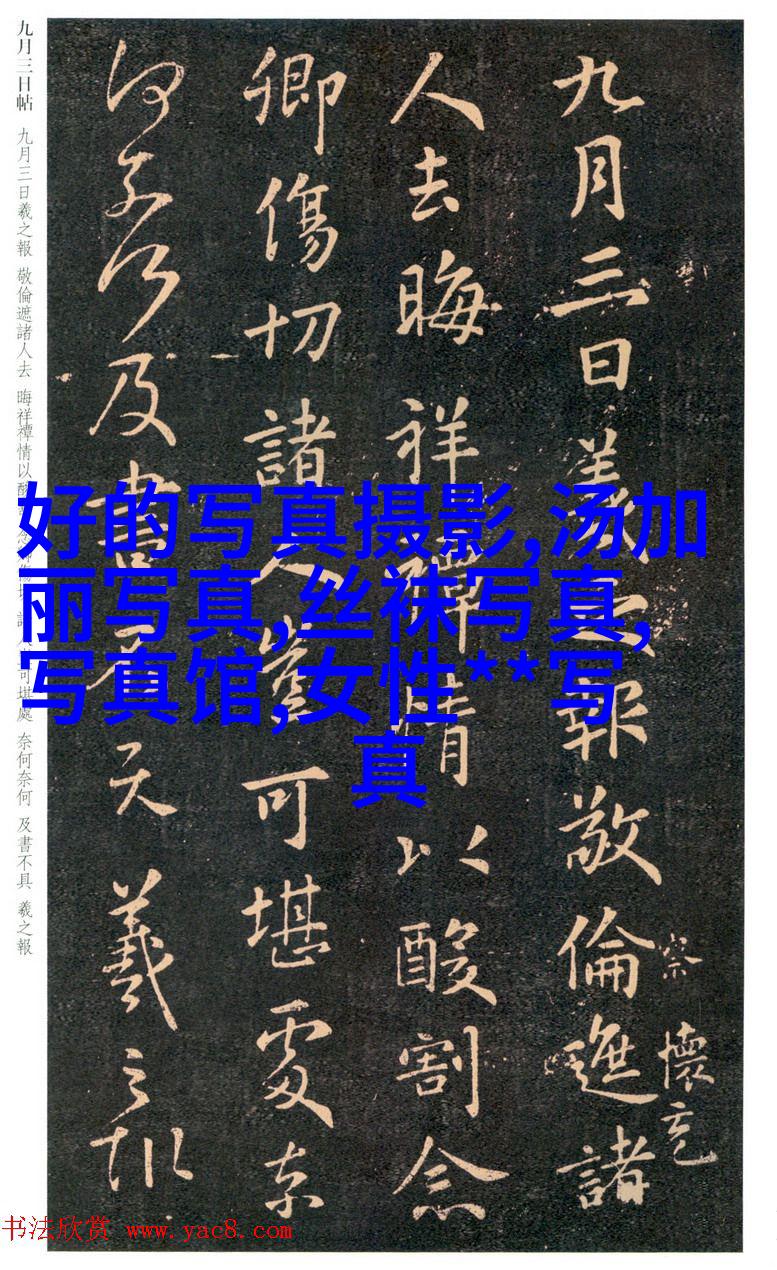 察懷充
九月三日羲之報敬倫遮諸
人去晦祥禫情以酸割念
卿傷切諸人豈可堪處奈
何奈何及書羲之報
九月三日帖 九月三日羲之報 敬倫遮諸人去 晦祥禫情以酸 諸人可堪處 奈何奈何 及書不具 羲之報
好的写真摄影,汤加
丽写真,丝袜写真,
写真馆,女性**写
真
书法欣赏 www.yac8.com